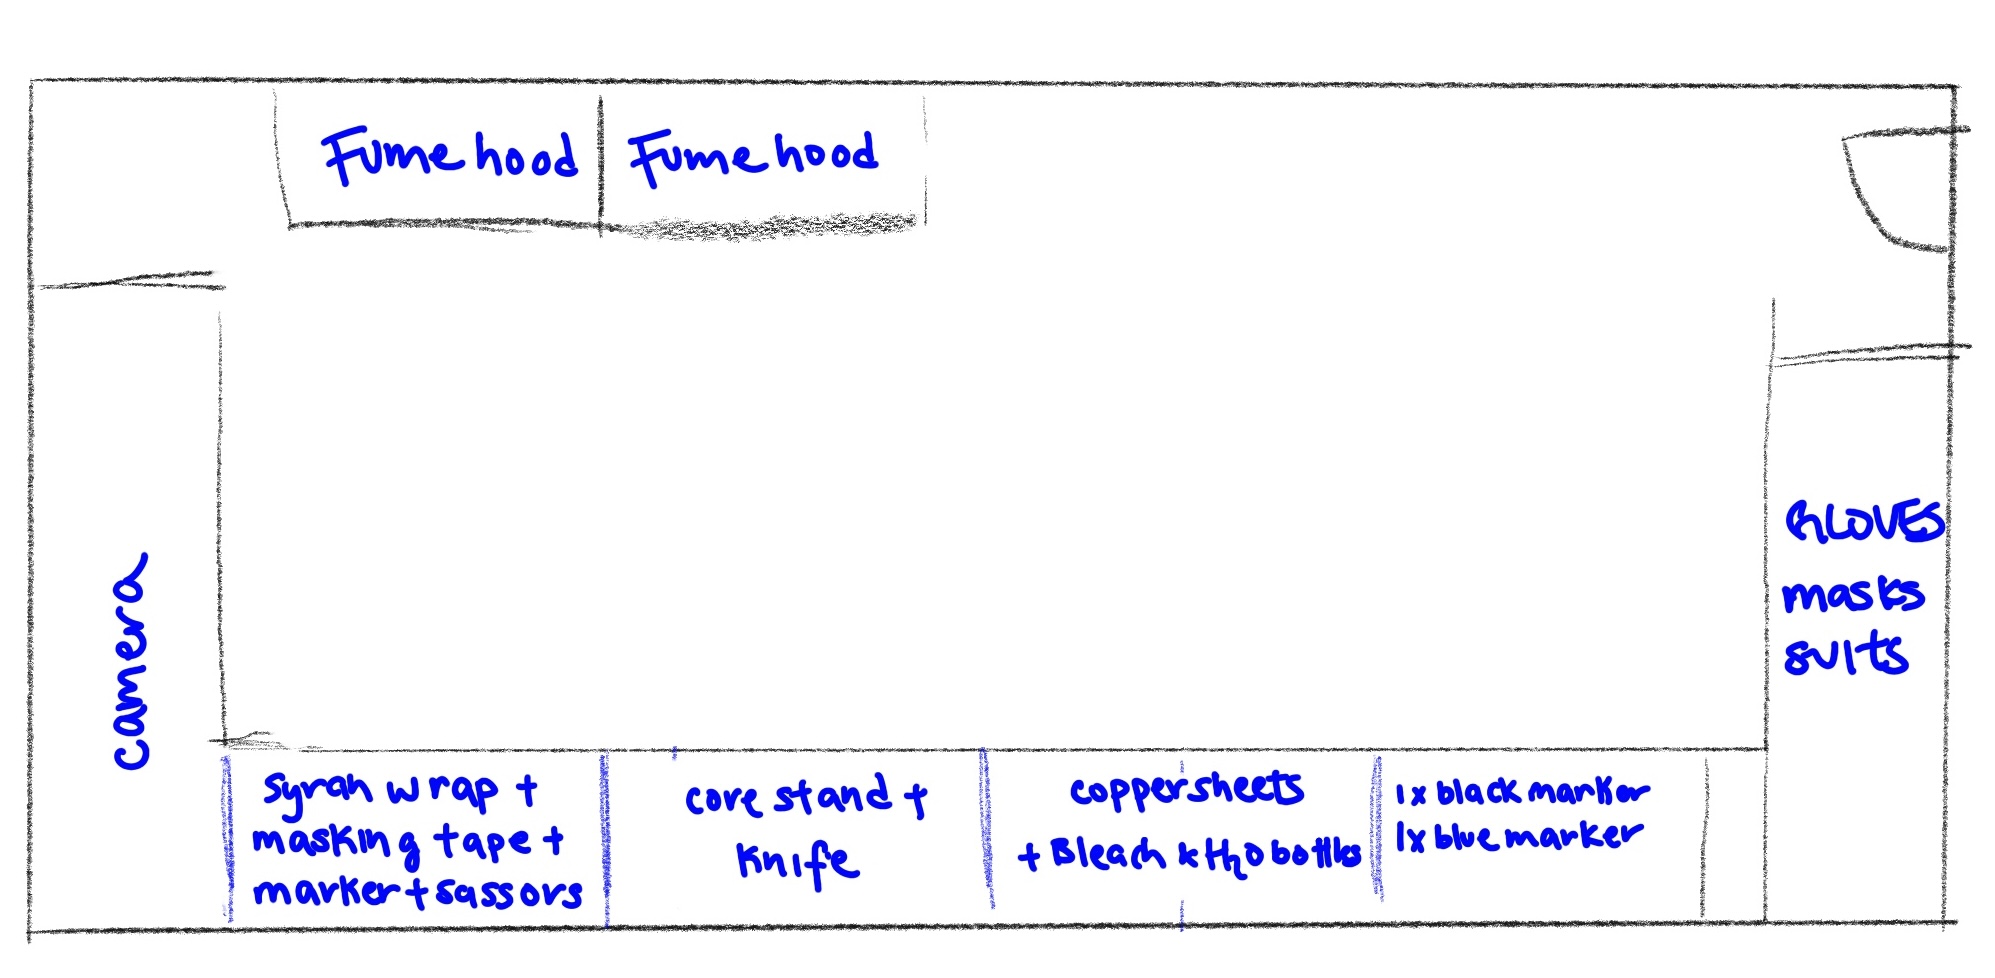 Fume hood
Fume hood
camera
GLOVES
masks
suits
syran wrap +
masking tape +
marker + sassors
core stand +
knife
copper sheets
+ Bleach & H2O bottles
1x black marker
1x blue marker